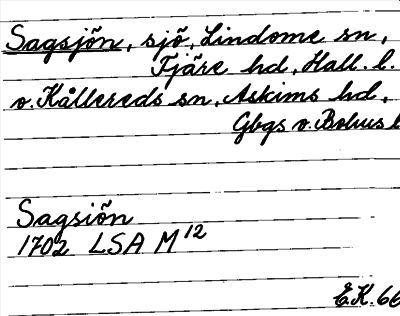 Sagsjön, sjö, Lindome sn,
Fjäre hd, Hall. l.
o. Kållereds sn, Askims hd,
Gbgs o. Bohus l
Sagsiön
1702 LSA M 12
E.K. 66